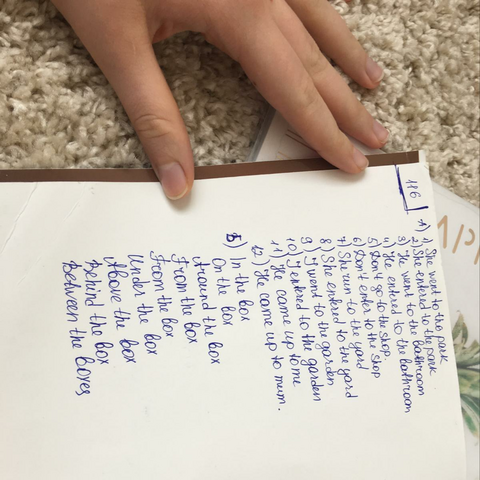 116
A) 1) She went to the park
2) She entered to the park
3) He went to the bathroom
4) He entered to the bathroom
5) Don't go to the shop.
6) Don't enter to the shop
7) She run to the yard
8) She entered to the yard
9) I went to the garden
10) I entered to the garden
11) He came up to me
12. He came up to mum.
Б) In the box
On the box
Around the box
From the box
From the box
Under the box
Above the box
Behind the box
Between the boxes